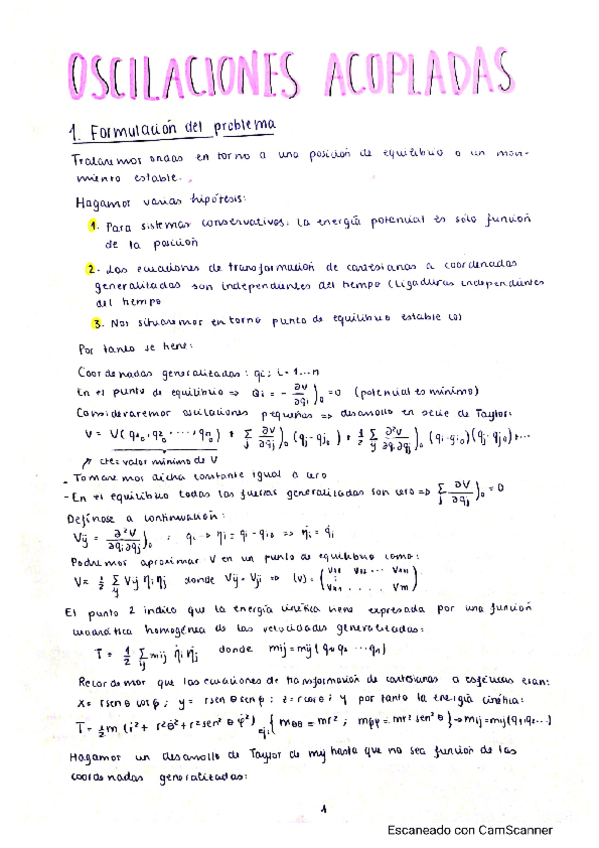 OSCILACIONES ACOPLADAS
1. Formulación del problema
Trataremos ondas en torno a una posición de equilibrio o un movi-
miento estable.
Hagamos varias hipótesis:
1. Para sistemas conservativos: La energía potencial es solo función
de la posición
2.- Las ecuaciones de transformación de cartesianas a coordenadas
generalizadas son independientes del tiempo (Ligaduras independientes
del tiempo
3. Nos situaremos en torno punto de equilibrio estable (0)
Por tanto se tiene:
Coordenadas generalizadas: qi; i=1...n
En el punto de equilibrio => Qi = - ∂V/∂qi )₀ = 0 (potencial es mínimo)
Consideraremos oscilaciones pequeñas => desarrollo en serie de Taylor:
V = V(q₁₀, q₂₀, ..., qₙ₀) + Σj ∂V/∂qj )₀ (qj - qj₀) + 1/2 Σ ∂²V/∂qi∂qj )₀ (qi - qi₀)(qj - qj₀) + ...
cte: valor mínimo de V
- Tomaremos dicha constante igual a cero
- En el equilibrio todas las fuerzas generalizadas son cero => Σj ∂V/∂qj )₀ = 0
Defínase a continuación:
Vij = ∂²V/∂qi∂qj )₀ ; qi -> ηi = qi - qi₀ => η̇i = q̇i
Podremos aproximar V en un punto de equilibrio como:
V = 1/2 Σij Vij ηi ηj donde Vij = Vji => (V) =
El punto 2 indica que la energía cinética viene expresada por una función
cuadrática homogénea de las velocidades generalizadas:
T = 1/2 Σij mij η̇i η̇j donde mij = mij (q₁, q₂ ... qn)
Recordemos que las ecuaciones de transformación de cartesianas a esféricas eran:
x = r senθ cosφ ; y = r senθ senφ ; z = r cosθ ; y por tanto la energía cinética:
T = 1/2 m (ṙ² + r²θ̇² + r² sen²θ φ̇²) ej: { mθθ = mr² ; mφφ = mr² sen²θ } -> mij = mij (q₁, q₂ ...)
Hagamos un desarrollo de Taylor de mij hasta que no sea función de las
coordenadas generalizadas:
1
Escaneado con CamScanner